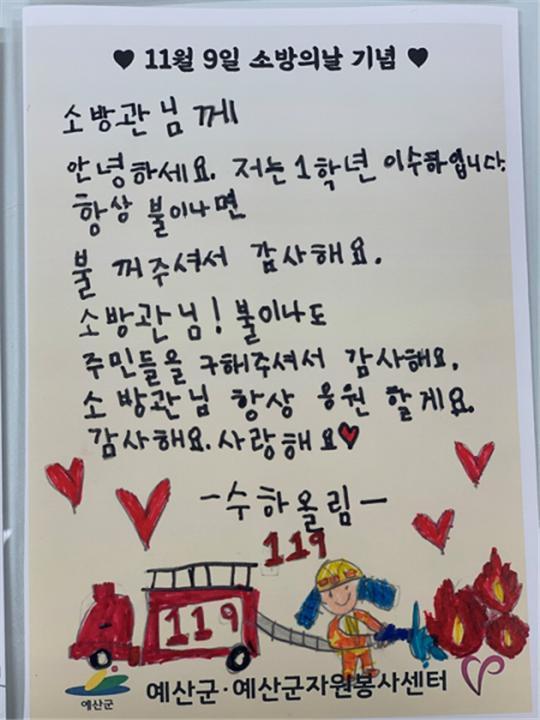 ♥ 11월 9일 소방의날 기념 ♥
소방관님께
안녕하세요. 저는 1학년 이수하입니다.
항상 불이나면
불 꺼주셔서 감사해요.
소방관님! 불이나도
주민들을 구해주셔서 감사해요.
소방관님 항상 응원 할게요.
감사해요. 사랑해요♥
-수하올림-
119
119
예산군
예산군·예산군자원봉사센터